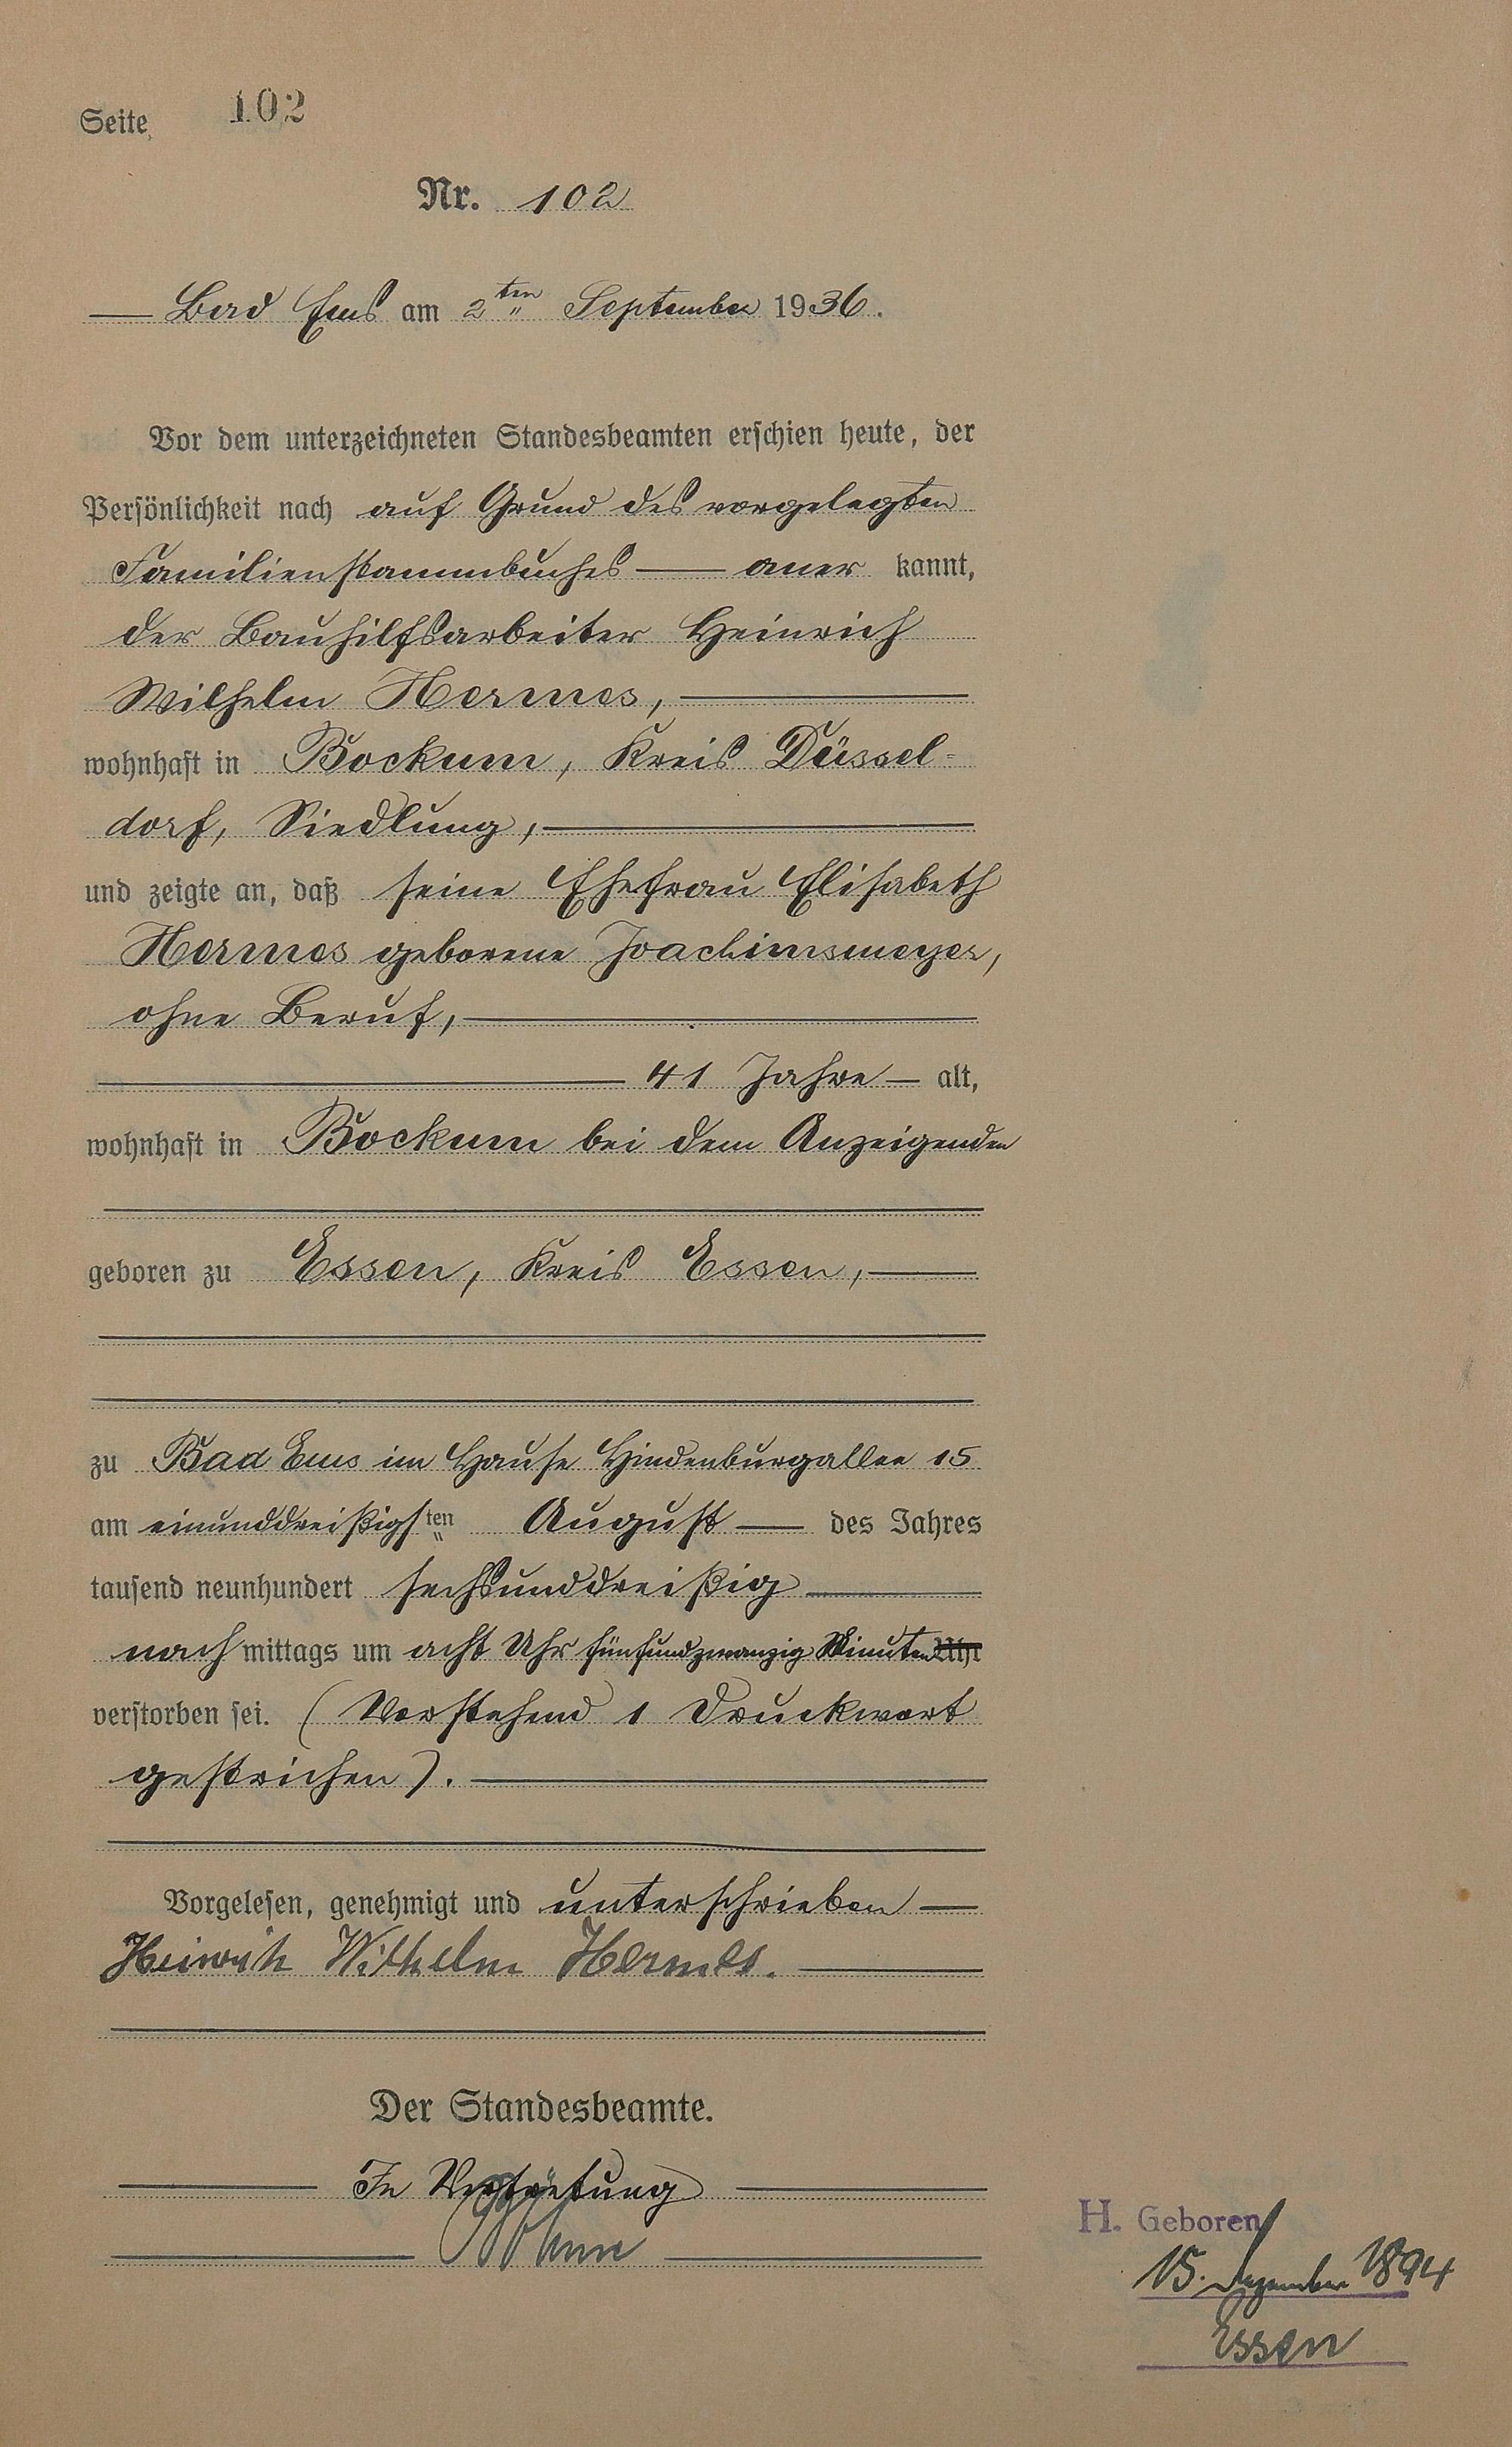 Seite 102
Nr. 102
Bad Ems am 2ten September 1936.
Vor dem unterzeichneten Standesbeamten erschien heute, der
Persönlichkeit nach auf Grund des vorgelegten
Familienstammbuches — aner kannt,
der Bauhilfsarbeiter Heinrich
Wilhelm Hermes,
wohnhaft in Bockum, Kreis Düssel=
dorf, Siedlung,
und zeigte an, daß seine Ehefrau Elisabeth
Hermes geborene Joachimsmeyer,
ohne Beruf,
41 Jahre — alt,
wohnhaft in Bockum bei dem Anzeigenden
geboren zu Essen, Kreis Essen,
zu Bad Ems im Hause Hindenburgallee 15
am einunddreißigsten August — des Jahres
tausend neunhundert sechsunddreißig
nach mittags um acht Uhr fünfundzwanzig Minuten Uhr
verstorben sei. (Vorstehend 1 Druckwort
gestrichen).
Vorgelesen, genehmigt und unterschrieben —
Heinrich Wilhelm Hermes.
Der Standesbeamte.
In Vertretung
H. Geboren
15. Dezember 1894
Essen